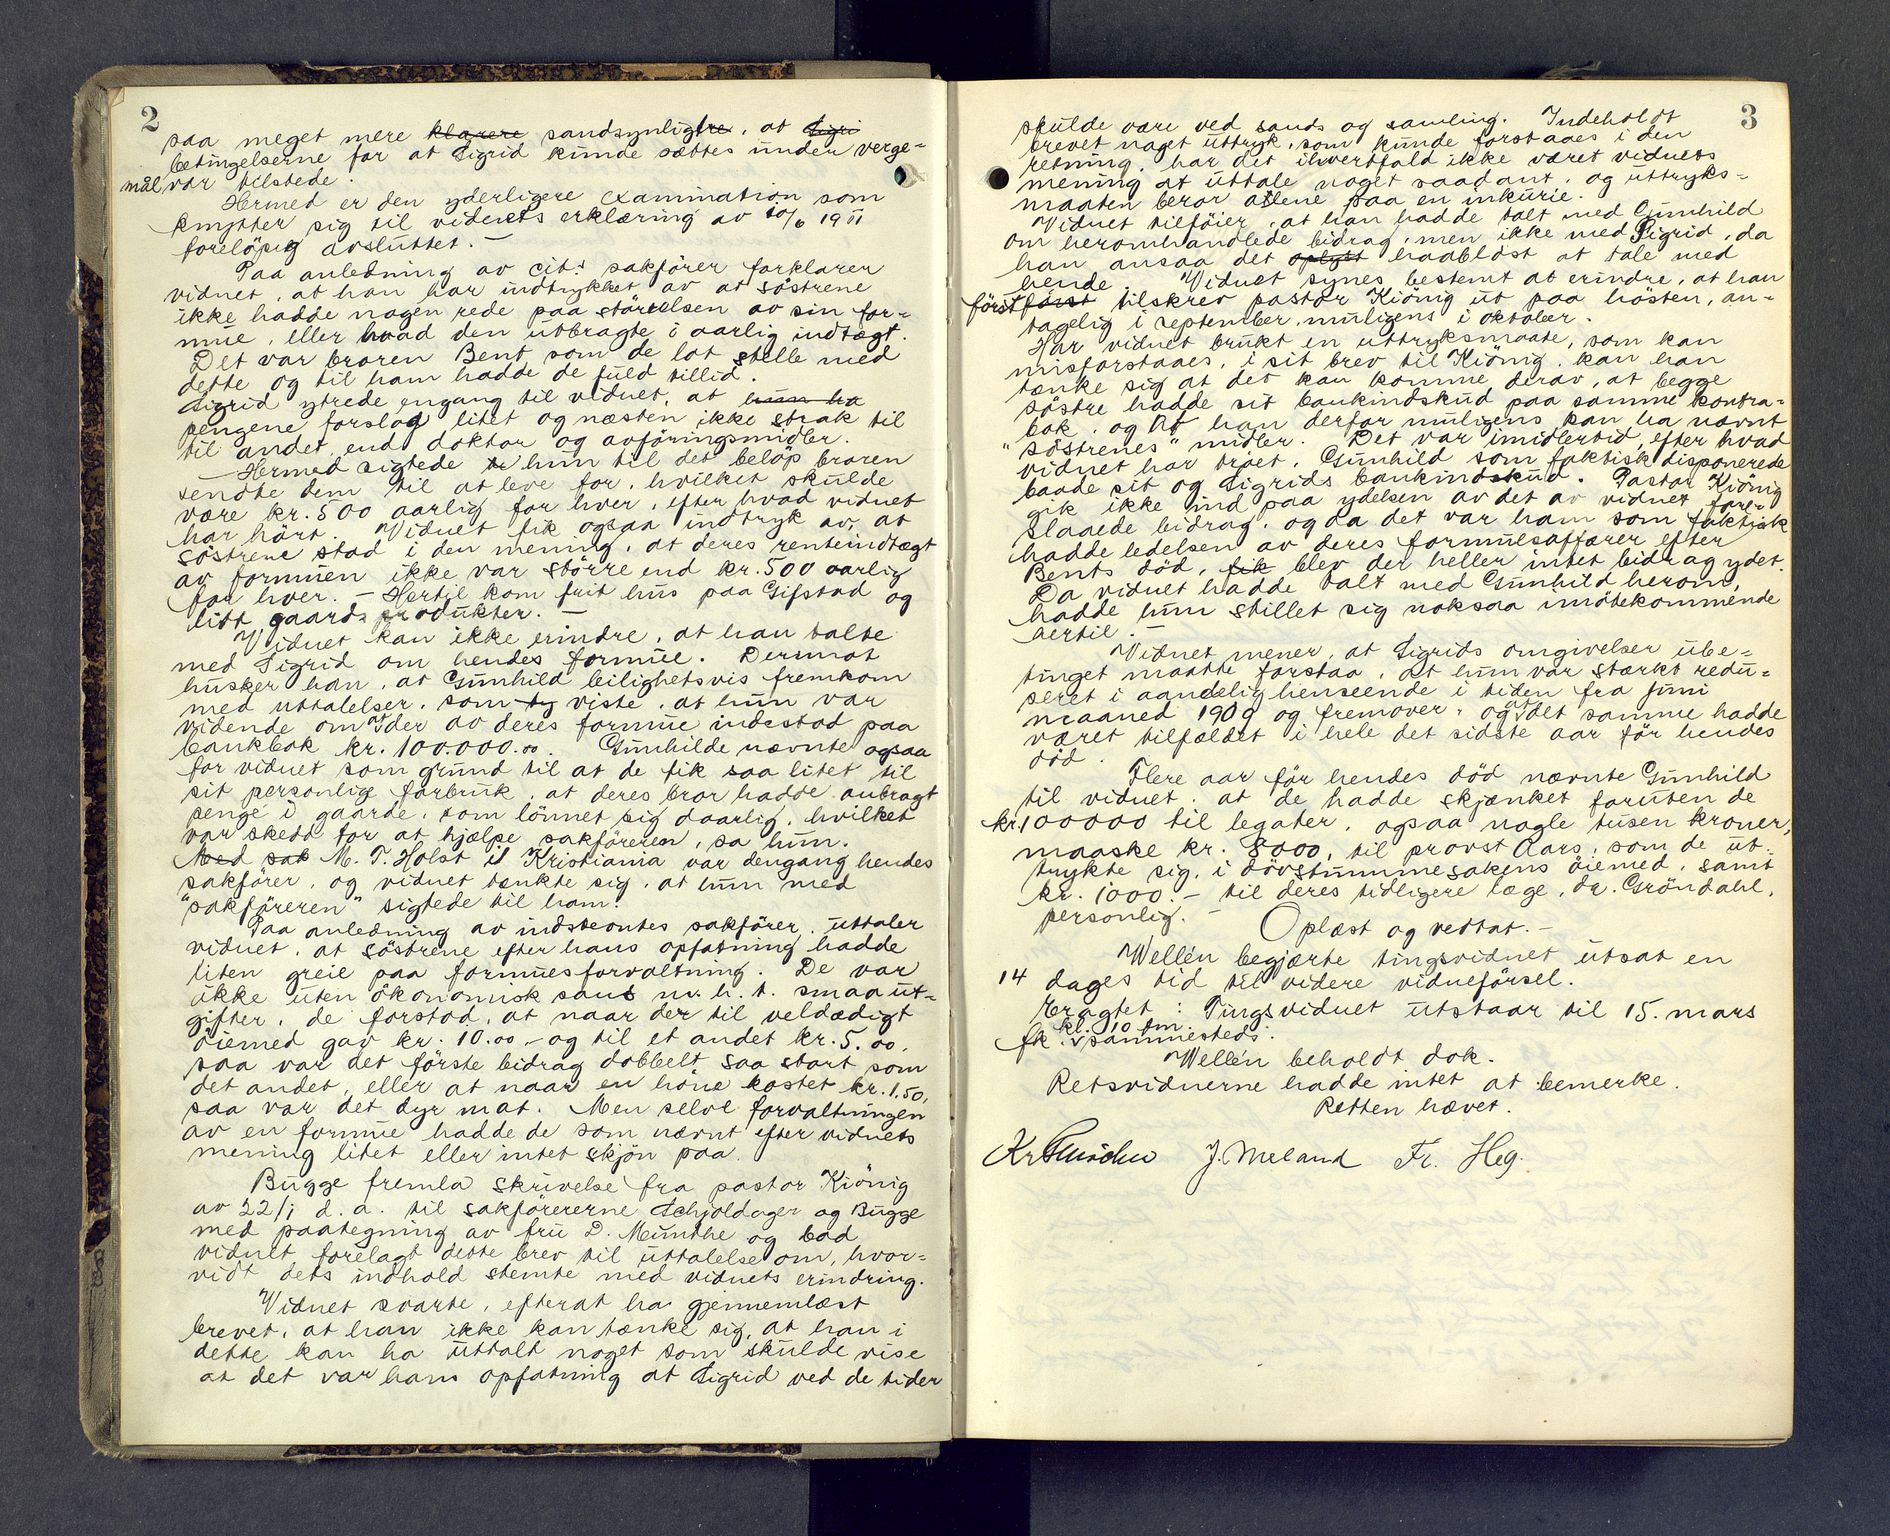 2
saa meget mere klarere sandsynligtre, at Sigri
betingelserne for at Sigrid kunde sættes under verge-
mål var tilstede.
Hermed er den yderligere examination som
knytter sig til vidnets erklæring av 10/6 1911
foreløpig avsluttet. —
Paa anledning av cit.s sakfører forklarer
vidnet, at han har indtrykket av at søstrene
ikke hadde nogen rede paa størrelsen av sin for-
mue, eller hvad den utbragte i aarlig indtægt.
Det var broren Bent, som de lot stelle med
dette og til ham hadde de fuld tillid.
Sigrid ytrede engang til vidnet, at hun ha
pengene forslog litet og næsten ikke strak til
til andet end doktor og avføringsmidler.
Hermed sigtede hun til det beløp broren
sendte dem til at leve for, hvilket skulde
være kr. 500 aarlig for hver, efter hvad vidnet
har hørt. Vidnet fik ogsaa indtryk av, at
søstrene stod i den mening, at deres renteindtægt
av formuen ikke var større end kr. 500 aarlig
for hver. — Hertil kom frit hus paa Gifstad og
litt gaardsprodukter. —
Vidnet kan ikke erindre, at han talte
med Sigrid om hendes formue. Derimot
husker han, at Gunhild leilighetsvis fremkom
med uttalelser, som ty viste, at hun var
vidende om der av deres formue indestod paa
bankbok kr. 100.000.00. Gunhilde nævnte ogsaa
for vidnet som grund til at de fik saa litet til
sit personlige forbruk, at deres bror hadde anbragt
penge i gaarde, som lønnet sig daarlig, hvilket
var skedd for at hjælpe sakføreren, sa hun.
Med sak M. T. Holst i Kristiania var dengang hendes
sakfører, og vidnet tænkte sig, at hun med
"sakføreren" sigtede til ham.
Paa anledning av indstevntes sakfører, uttaler
vidnet, at søstrene efter hans opfatning hadde
liten greie paa formuesforvaltning. De var
ikke uten økonomisk sans m. h. t. smaa ut-
gifter, de forstod, at naar der til veldædigt
øiemed gav kr. 10.00 – og til et andet kr. 5.00,
saa var det første bidrag dobbelt saa stort som
det andet, eller at naar en høne kostet kr. 1,50,
saa var det dyr mat. Men selve forvaltningen
av en formue hadde de som nævnt efter vidnets
mening litet eller intet skjøn paa.
Bugge fremla skrivelse fra pastor Kiönig
av 22/1 d. a. til sakførererne Schjoldager og Bugge
med paategning av fru D. Munthe og bad
vidnet forelagt dette brev til uttalelse om, hvor-
vidt dets indhold stemte med vidnets erindring.
Vidnet svarte, efterat ha gjennemlæst
brevet, at han ikke kan tænke sig, at han i
dette kan ha uttalt noget som skulde vise
at det var hans opfatning at Sigrid ved de tider
3
skulde være ved sands og samling. Indeholdt
brevet noget uttryk, som kunde forstaaes i den
retning, har det ihvertfald ikke været vidnets
mening at uttale noget saadant, og uttryks-
maaten beror alene paa en inkurie.
Vidnet tilføier, at han hadde talt med Gunhild
om heromhandlede bidrag, men ikke med Sigrid, da
han ansaa det oplyst haabløst at tale med
hende. Vidnet synes bestemt at erindre, at han
først først tilskrev pastor Kiönig ut paa høsten, an-
tagelig i september, muligens i oktober.
Har vidnet brukt en uttryksmaate, som kan
misforstaaes, i sit brev til Kiönig, kan han
tænke sig at det kan komme derav, at begge
søstre hadde sit bankindskud paa samme kontra-
bok, og at han derfor muligens kan ha nævnt
"søstrenes" midler. Det var imidlertid, efter hvad
vidnet har troet, Gunhild som faktisk disponerede
baade sit og Sigrids bankindskud. Pastor Kiönig
gik ikke ind paa ydelsen av det av vidnet fore-
slaaede bidrag, og da det var ham som faktisk
hadde ledelsen av deres formuesaffærer efter
Bents død, fik blev der heller intet bidrag ydet.
Da vidnet hadde talt med Gunhild herom,
hadde hun stillet sig noksaa imøtekommende
hertil. —
Vidnet mener, at Sigrids omgivelser ube-
tinget maatte forstaa, at hun var stærkt redu-
seret i aandelig henseende i tiden fra juni
maaned 1909 og fremover, og at det samme hadde
været tilfældet i hele det sidste aar før hendes
død.
Flere aar før hendes død nævnte Gunhild
til vidnet, at de hadde skjænket foruten de
kr. 100000 til legater, ogsaa nogle tusen kroner,
maaske kr. 8000, til provst Aars, som de ut-
trykte sig, i døvstummesakens øiemed, samt
kr. 1000.– til deres tidligere læge, dr. Gröndahl,
personlig. –
Oplæst og vedtat. —
Wellén begjærte tingsvidnet utsat en
14 dages tid til videre vidneførsel.
Eragtet: Tingsvidnet utstaar til 15. mars
kl. 10 fm.
fk. sammesteds.
Wellén beholdt dok.
Retsvidnerne hadde intet at bemerke.
Retten hævet.
J. Meland Fr. Heg.